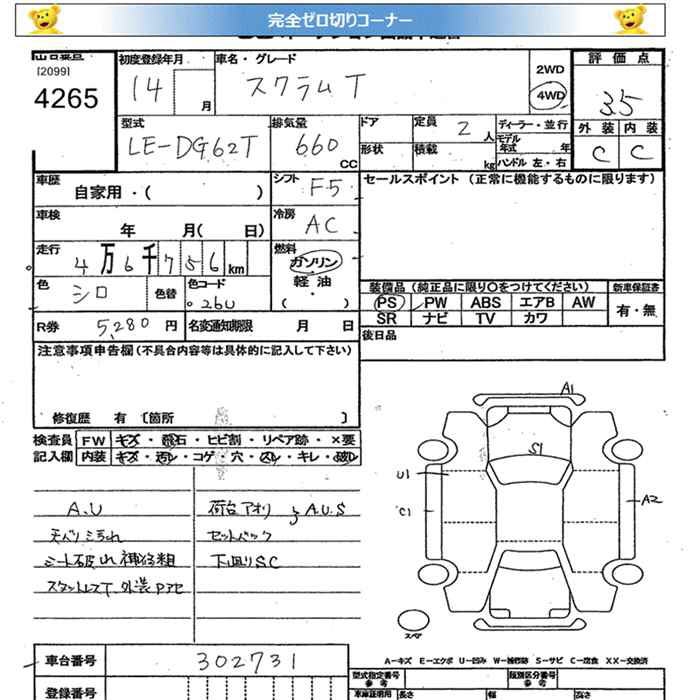 完全ゼロ切りコーナー
[2099]
4265
初度登録年月
14 月
車名・グレード
スクラムT
2WD
4WD
評価点
3.5
型式
LE-DG62T
排気量
660 CC
ドア
形状
定員 2 人
積載 kg
ディーラー・並行
モデル年式 年
ハンドル 左・右
外装 内装
C C
車歴
自家用・( )
シフト F5
セールスポイント (正常に機能するものに限ります)
車検
年 月( 日)
冷房 AC
走行
4万6千756km
燃料
ガソリン
軽油
( )
色 シロ
色替
色コード
26U
装備品 (純正品に限り○をつけてください)
新車保証書
PS PW ABS エアB AW
有・無
SR ナビ TV カワ
R券 5,280 円
名変通知期限 月 日
後日品
注意事項申告欄(不具合内容等は具体的に記入して下さい)
修復歴 有 〔箇所 〕
検査員記入欄
FW キズ・飛石・ヒビ割・リペア跡・×要
内装 キズ・汚レ・コゲ・穴・スレ・キレ・破レ
A.U
天バリミダれ
シート破れ 補修粗
スタットレスT. 外装Pアセ
荷台アオリ A.U.S
セットバック
下回りSC
A1
S1
U1
C1
A2
スペア
A-キズ E-エクボ U-凹み W-補修跡 S-サビ C-腐食 XX-交換済
車台番号 302731
登録番号
型式指定番号
参考
類別区分番号
参考
車庫証明用
長さ
幅
高さ